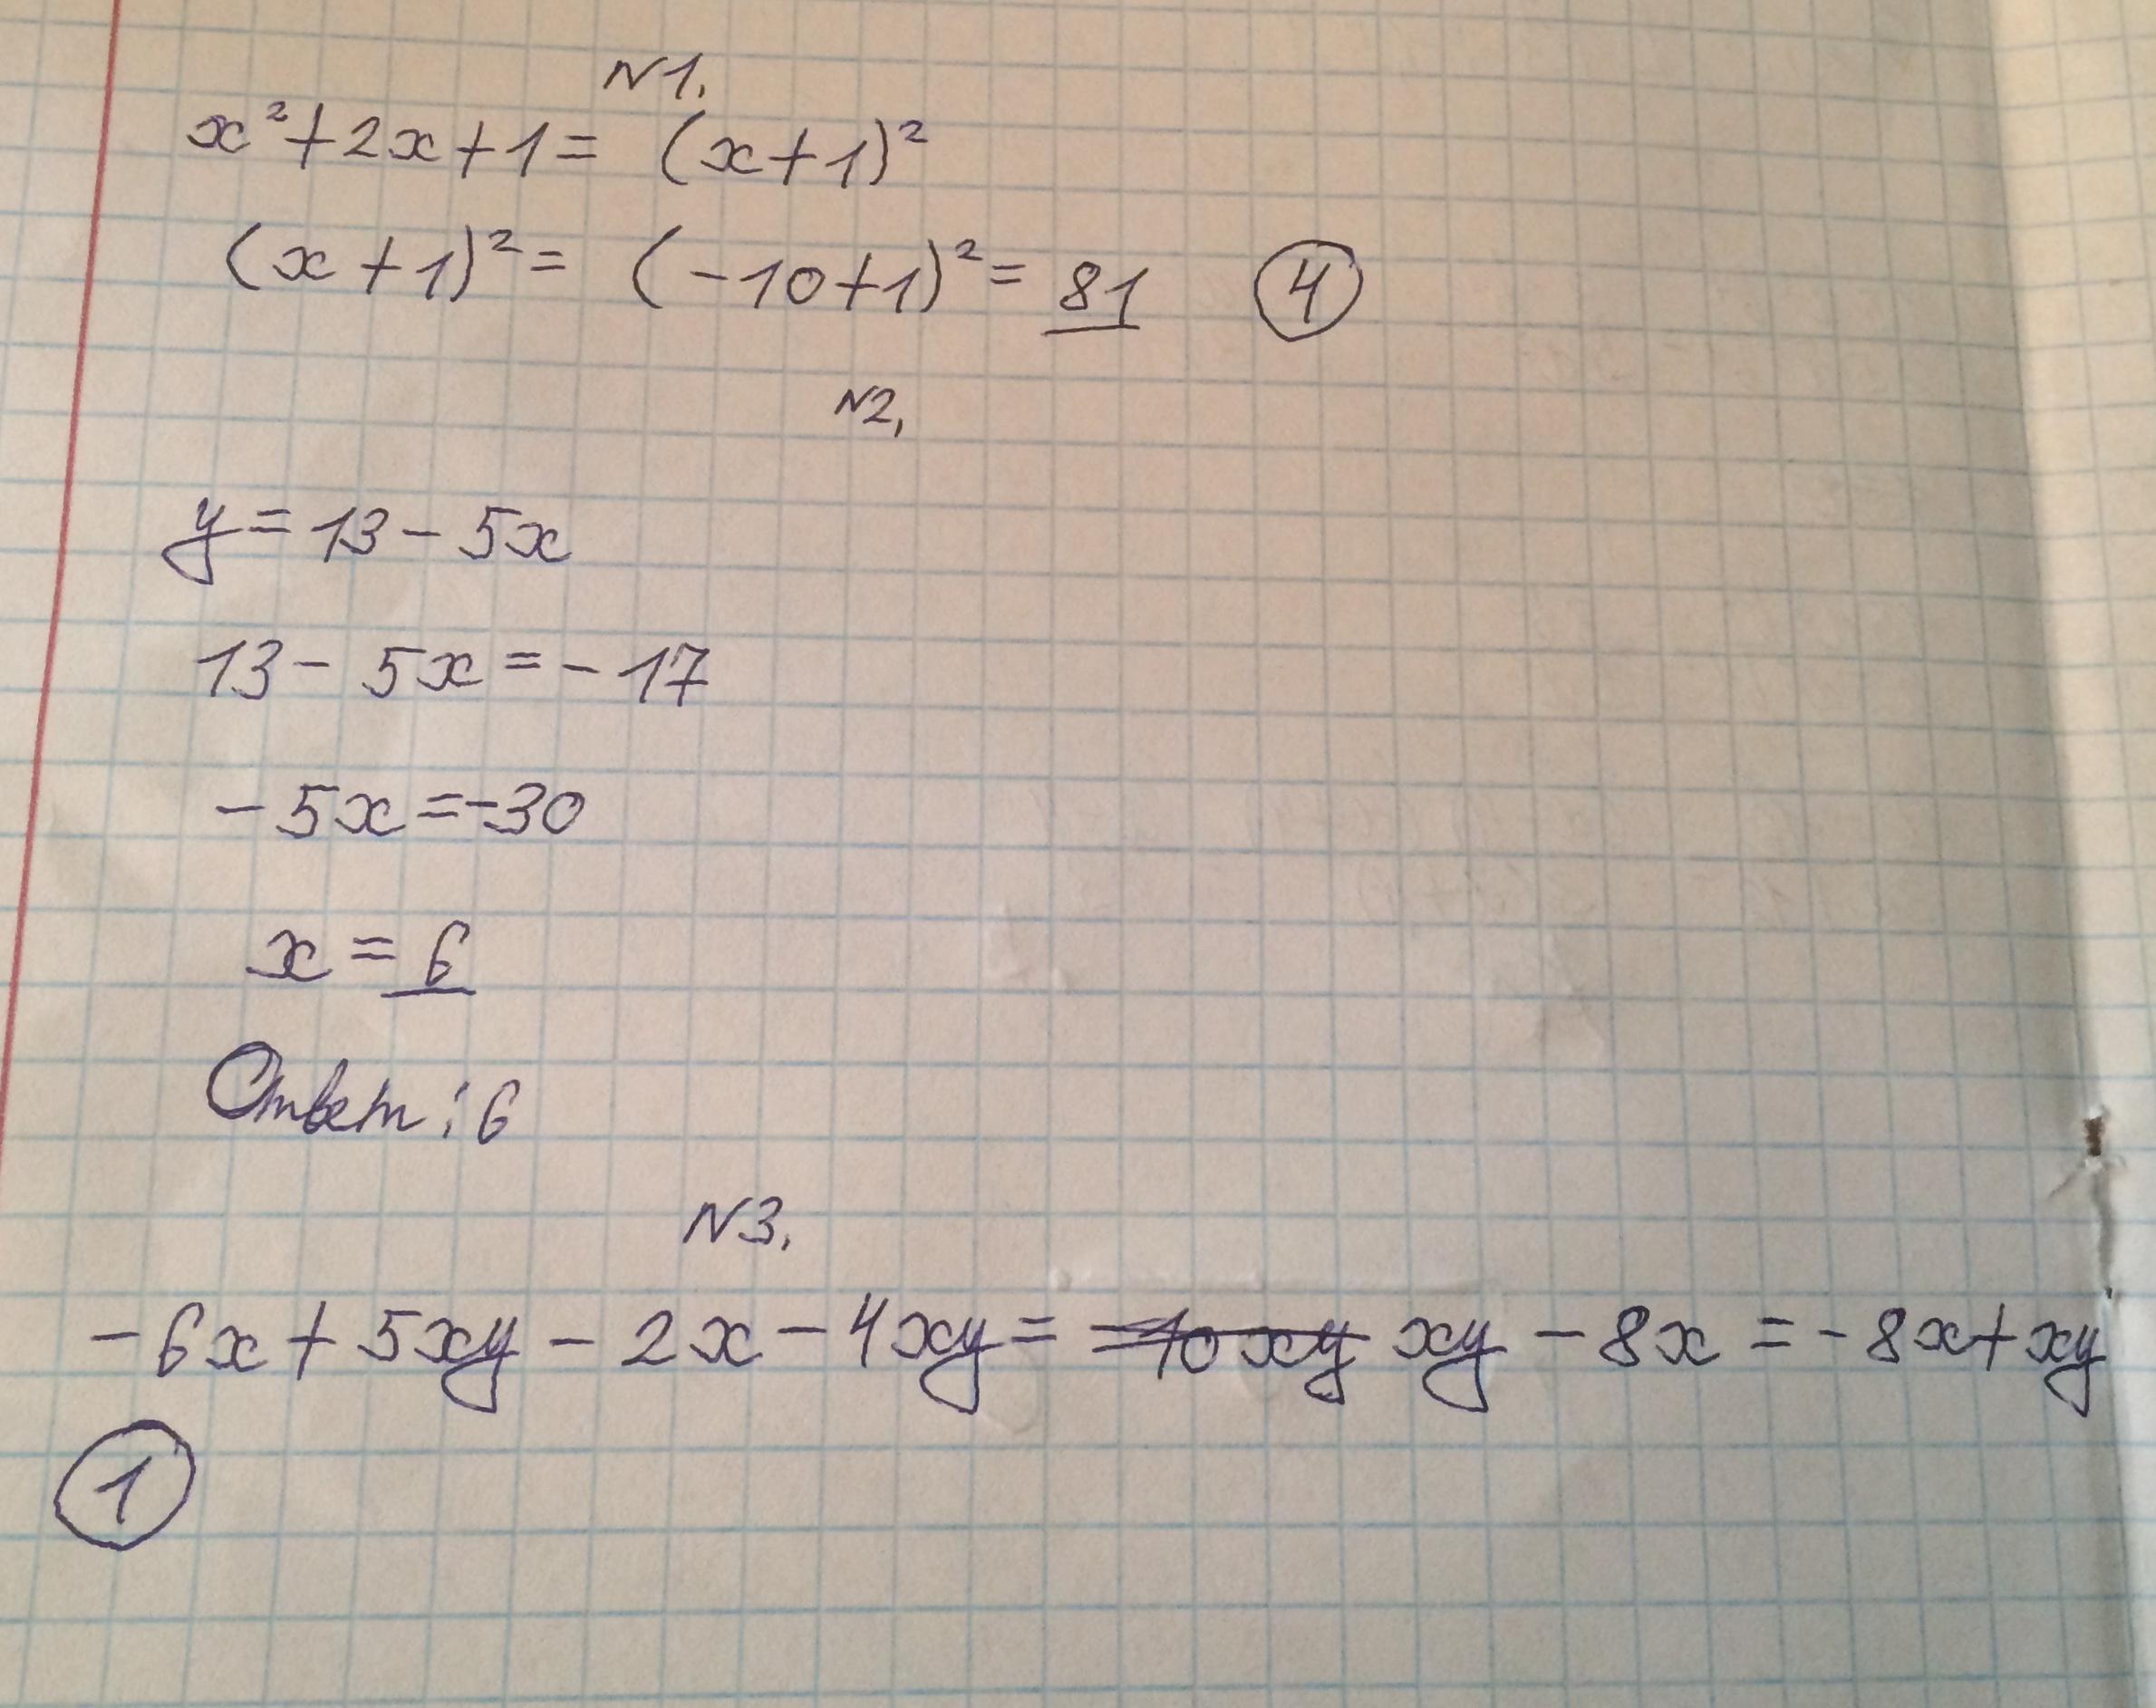 N1.
x²+2x+1= (x+1)²
(x+1)²= (-10+1)²= 81 4
N2.
y=13-5x
13-5x=-17
-5x=-30
x=6
Ответ: 6
N3.
-6x+5xy-2x-4xy= =10xy xy-8x=-8x+xy
1